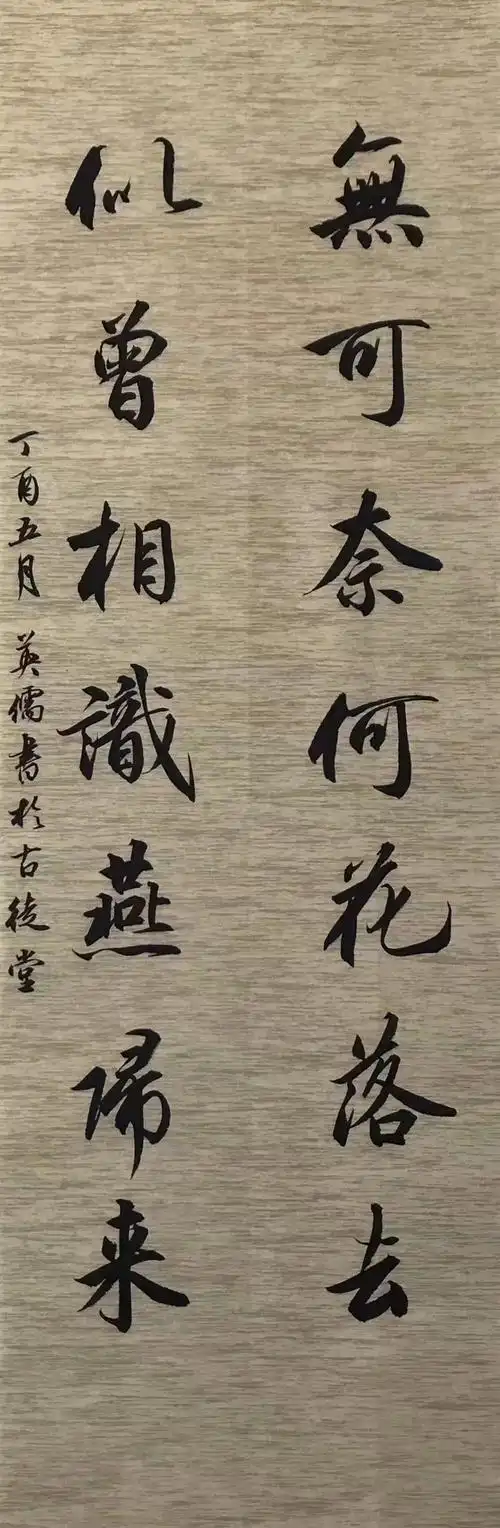 無可奈何花落去
似曾相識燕歸来
丁酉五月 英儒書於古徒堂